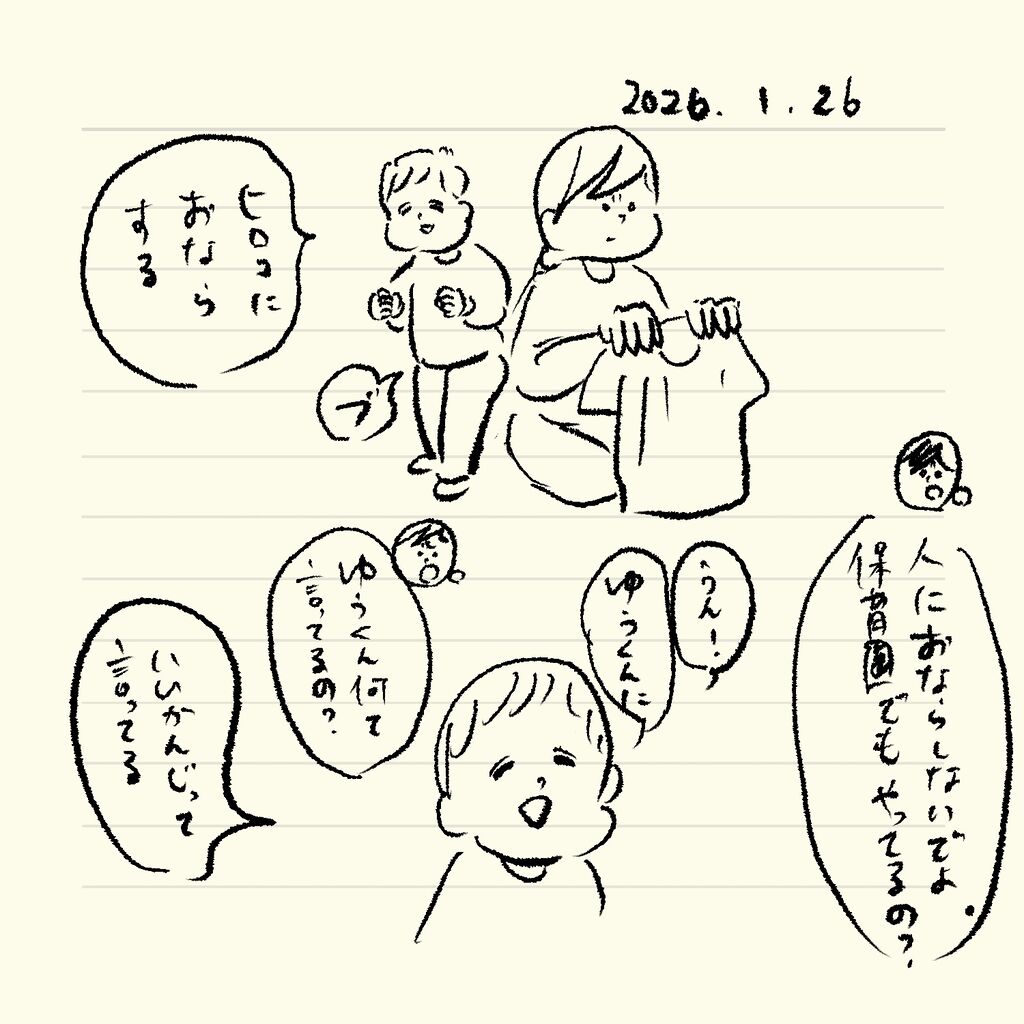 2026.1.26
ヒロコに
おなら
する
プ
人におならしないでよ。
保育園でもやってるの?
うん!
ゆうくんに
ゆうくん何て
言ってるの?
いいかんじって
言ってる